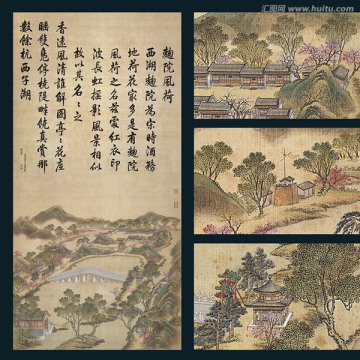 汇图网 www.huitu.com
麯院風荷
西湖麯院為宋時酒務
地荷花家多是有麯院
風荷之名兹處紅衣印
波長虹搖影風景相似
故以其名名之
香遠風清誰解圖亭亭花底
睡雙鳧停橈堤畔饒真賞那
數餘杭西子湖